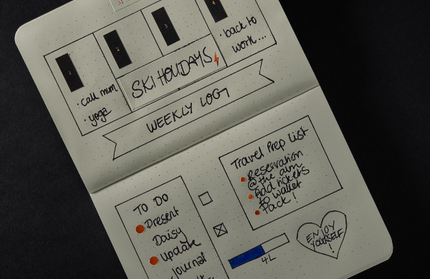 · call mum
· yoga
SKI HOLIDAYS
· back to
work...
WEEKLY LOG
TO DO
Present
Daisy
update
journal
Travel Prep List
Reservation
@ the
Add tickets
to wallet
Pack!
4L
ENJOY
YOURSELF
!